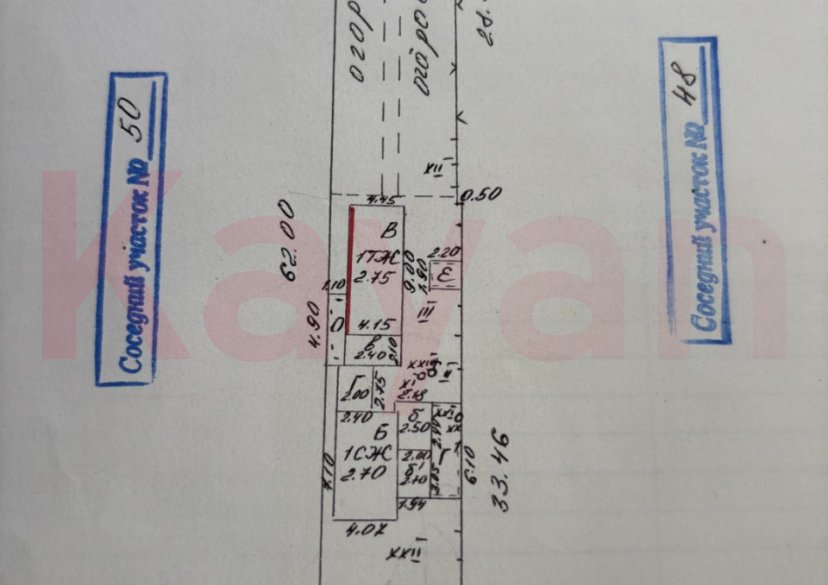 огор
огоро
28.
Соседний участок № 50
Соседний участок № 48
XII
4.45
0.50
62.00
В
1ТЖ
2.75
9.00
2.20
1.90
Е
1.10
III
4.90
О
4.15
в
2.40
2.10
XXIII
II
Г
2.00
2.75
XI
2.18
2.40
Б
1СЖ
2.70
б
2.50
2.00
б1
2.10
Г
3.05
6.10
33.46
7.10
1.94
4.07
XXII
Kayan